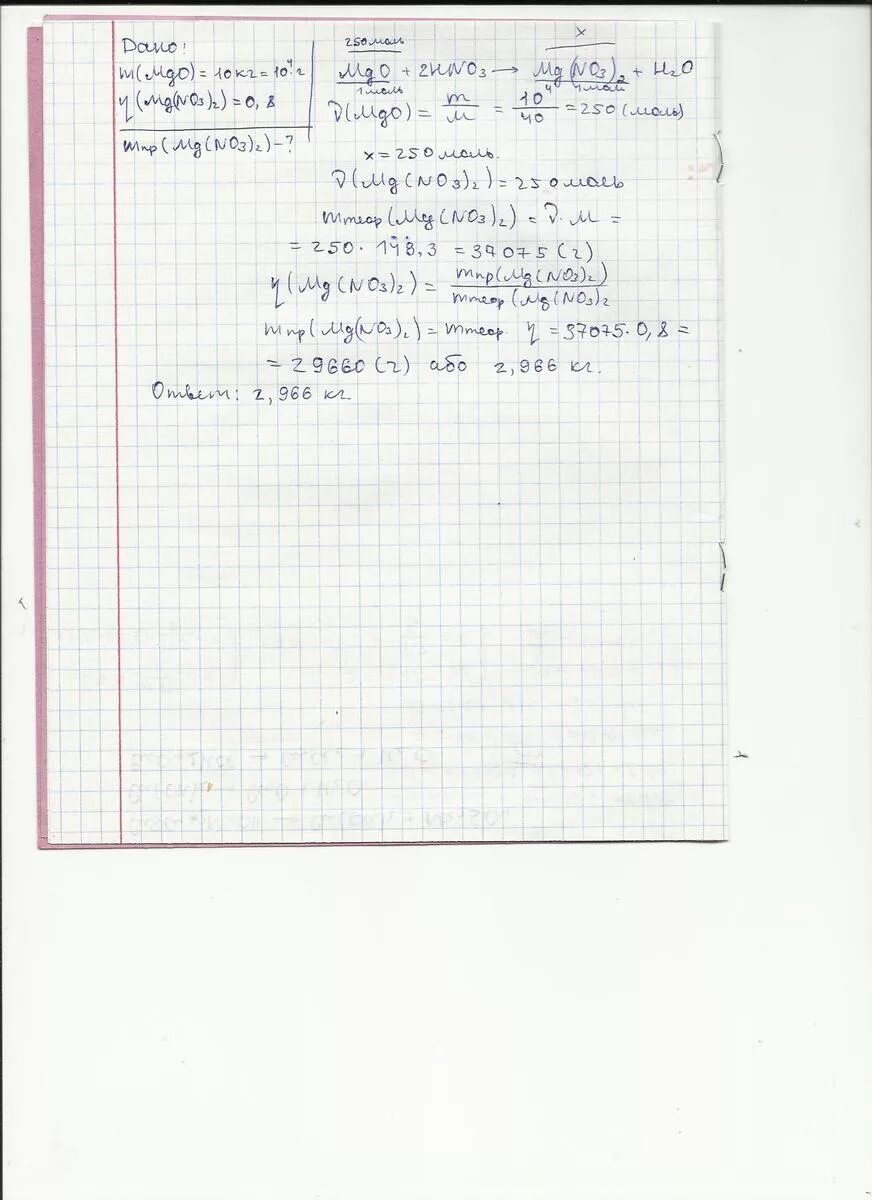 Дано:
m(MgO) = 10кг = 10⁴г
η(Mg(NO₃)₂) = 0,8
mпр(Mg(NO₃)₂) – ?
250моль x
MgO + 2HNO₃ → Mg(NO₃)₂ + H₂O
1моль 1моль
ν(MgO) = m/M = 10⁴/40 = 250 (моль)
x = 250 моль.
ν(Mg(NO₃)₂) = 250 моль
mтеор(Mg(NO₃)₂) = ν · M =
= 250 · 148,3 = 37075 (г)
η(Mg(NO₃)₂) = mпр(Mg(NO₃)₂)/mтеор(Mg(NO₃)₂
mпр(Mg(NO₃)₂) = mтеор. η = 37075 · 0,8 =
= 29660 (г) або 2,966 кг.
Ответ: 2,966 кг.